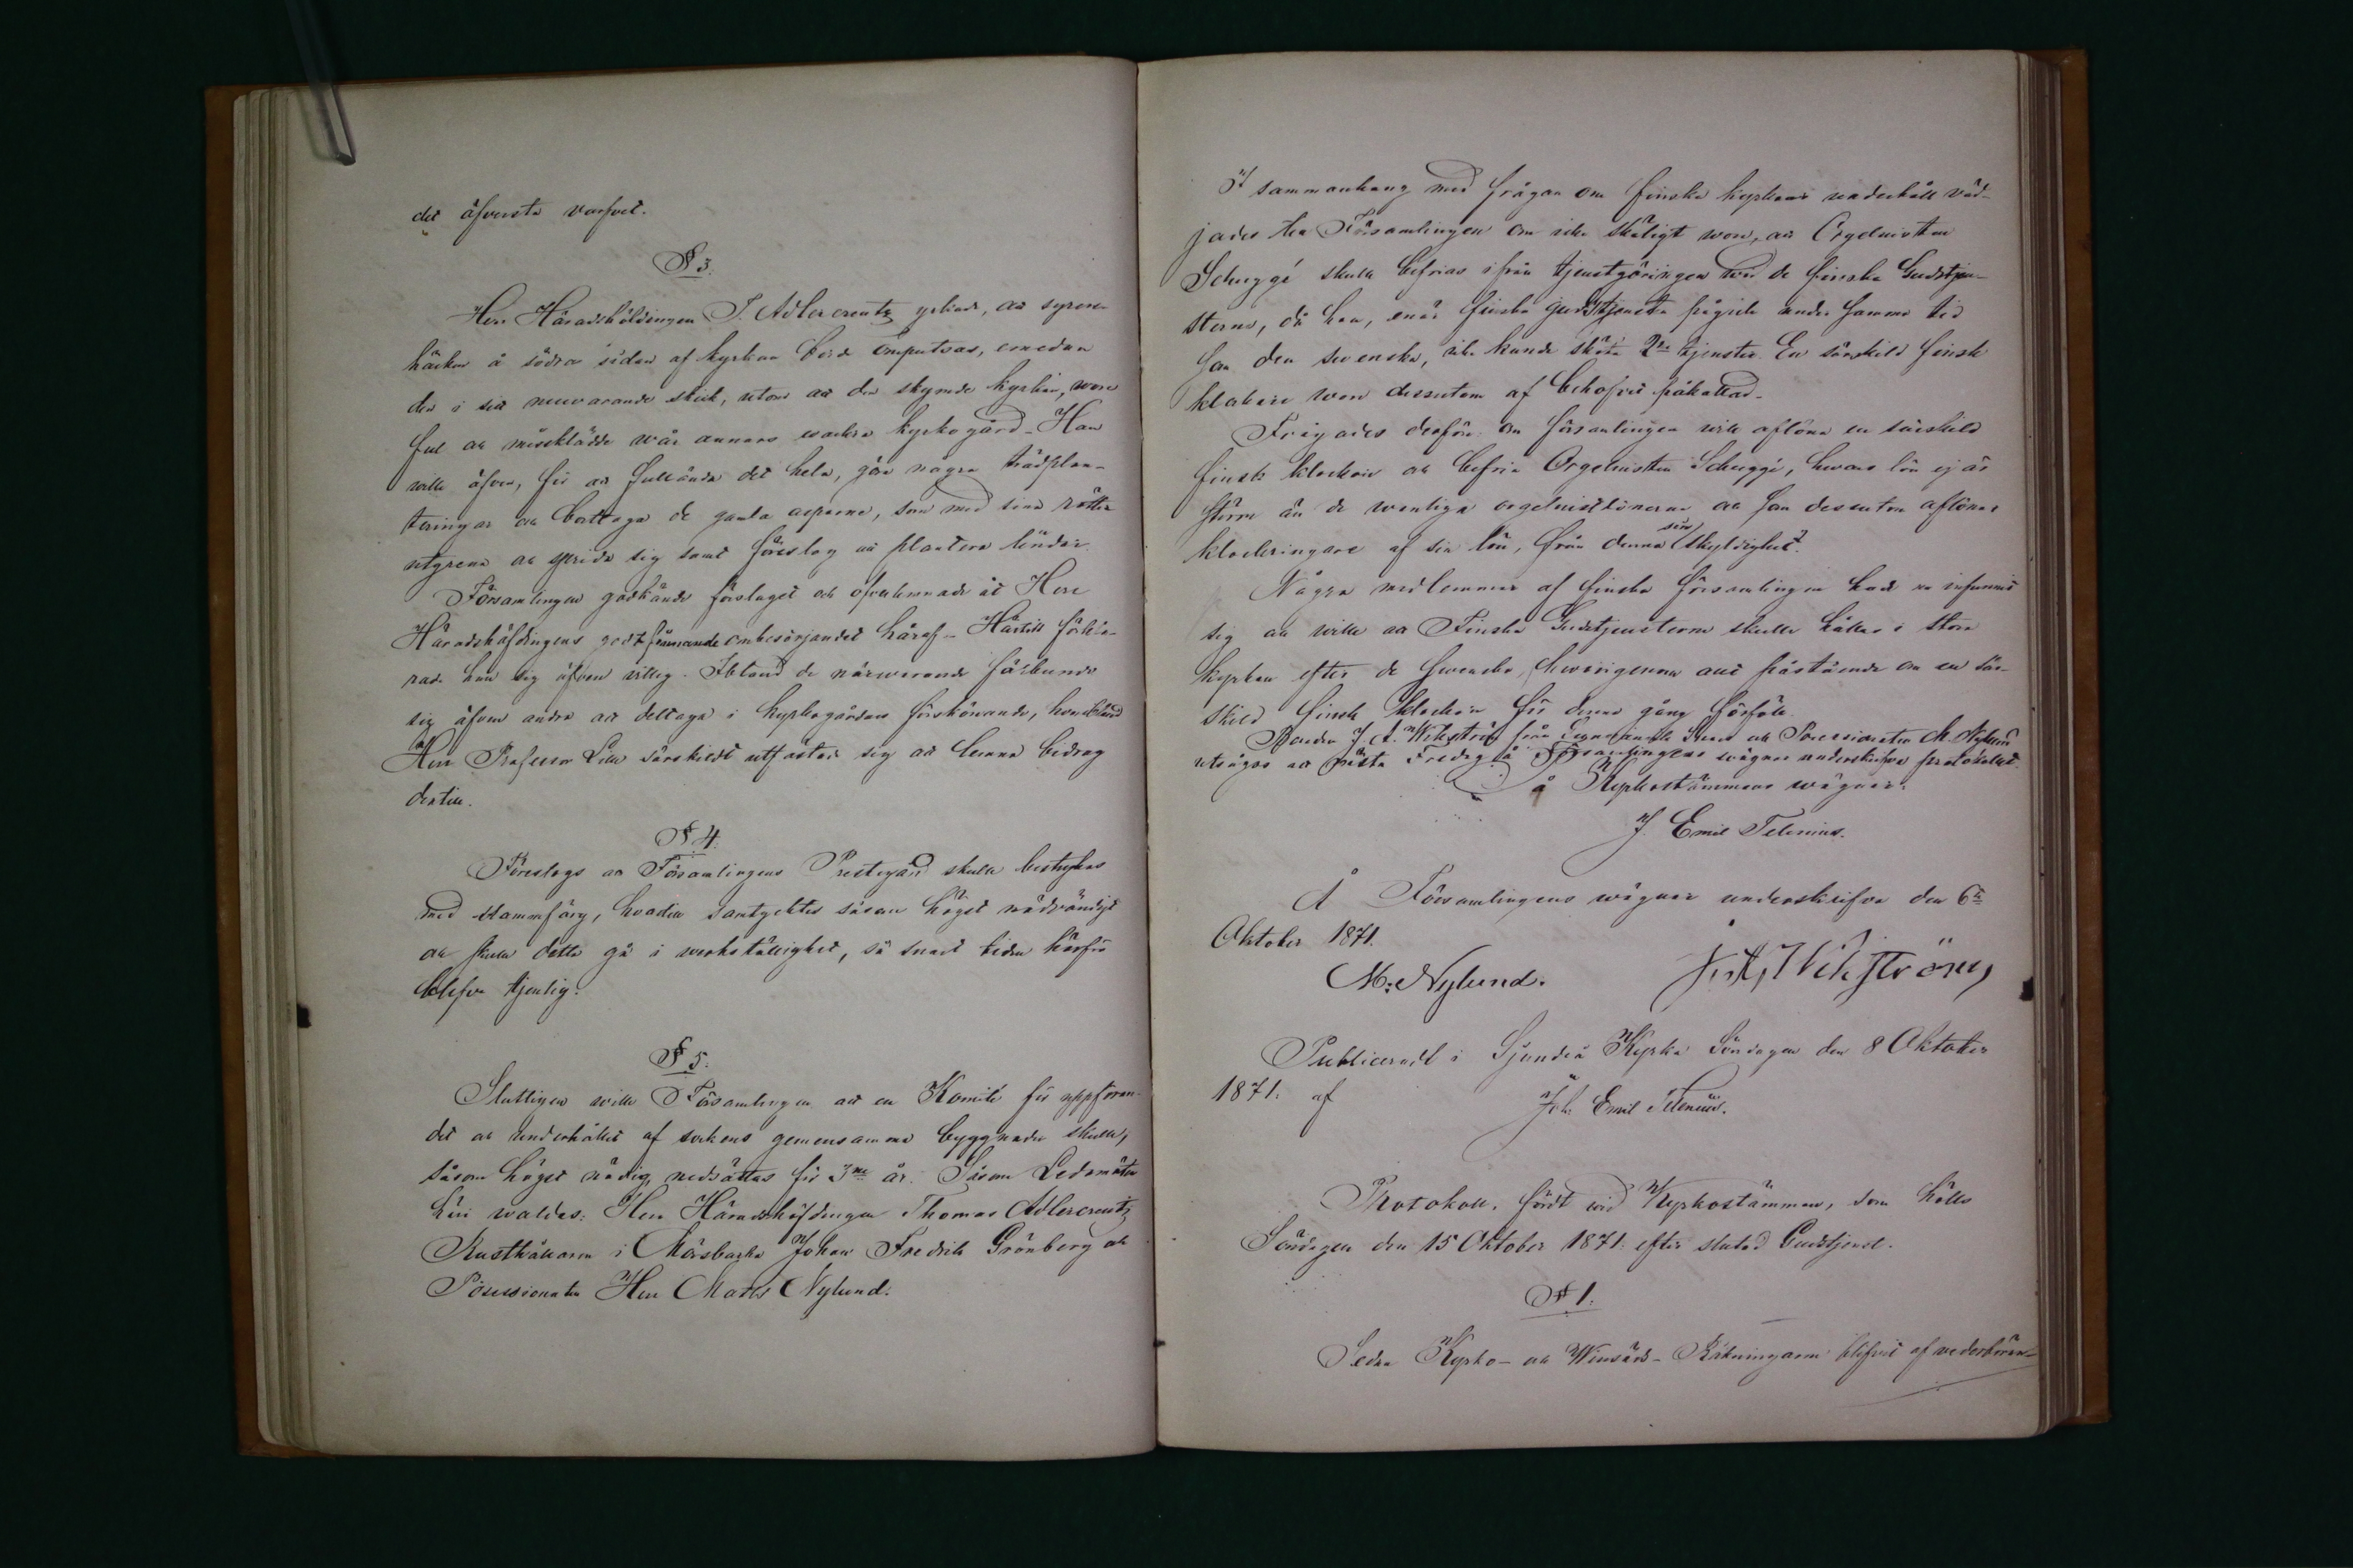 det öfversta varfvet.
§ 3.
Herr Häradshöfdingen T. Adlercreutz yrkade, att syren-
häcken å södra sidan af kyrkan borde omputsas, emedan
den i sitt nuvarande skick, utom att den skymde kyrkan, wore
ful och missklädde wår annars wackra kyrkogård. Han
wille äfven, för att fulländа det hela, göra några trädplan-
teringar och borttaga de gamla asparne, som med sina rötter
utgrena och sprida sig samt föreslog att plantera lindar.
Församlingen godkände förslaget och öfverlemnade åt Herr
Häradshöfdingens godtfinnande ombesörjandet häraf. Härtill förkla-
rade han sig äfven villig. Ibland de närwarande förbundo
sig äfven andra att deltaga i kyrkogårdens förskönande, hvaribland
Herr Professor Lille särskildt utfäste sig att lemna bidrag
dertill.
§ 4.
Föreslogs att Församlingens Prestegård skulle bestrykas
med slammfärg, hvartill samtycktes såsom högst nödvändigt
och skulle detta gå i werkställighet, så snart tiden härför
blefve tjenlig.
§ 5.
Slutligen wille Församlingen att en Komité för uppföran-
det och underhållet af sockens gemensamma byggnader skulle,
såsom högst nödig, nedsättas för 3ne år. Såsom Ledamöter
häri waldes: Herr Häradshöfdingen Thomas Adlercreutz
Rusthållaren i Mårsbacka Johan Fredrik Grönberg och
Possessionaten Herr Matts Nylund.
I sammanhang med frågan om finska kyrkans underhåll väd-
jades till Församlingen om icke skäligt wore, att Orgelnisten
Schuggé skulle befrias ifrån tjenstgöringen wid de finska Gudstjen-
sterne, då han, enär finska gudstjensten pågick under samma tid
som den swenska, icke kunde sköta 2ne tjenster. En särskild finsk
klockare wore dessutom af behofvet påkallad.
Frågades derföre: om församlingen will aflöna en särskild
finsk klockare och befria Orgelnisten Schuggé, hwars lön ej är
större än de wanliga orgelnistlönerna och som dessutom aflönar
klockringare af sin lön, från denna sin skyldighet?
Några medlemmar af finska församlingen hade nu infunnit
sig och wille att Finska Gudstjensterne skulle hållas i stora
kyrkan efter de Swenska, hwarigenom allt påstående om en sär-
skild finsk klockare för denna gång förföll.
Bonden J. A. Wikström från och Possessionaten M. Nylund
utsågos att nästa Fredag å Församlingens wägnar underskrifva protokollet.
å Kyrkostämmans wägnar:
J. Emil Telenius.
Å Församlingens wägnar underskrifva den 6te
Oktober 1871.
M: Nylund. J: A, Wikström
Publiceradt i Sjundeå Kyrka Söndagen den 8 Oktober
1871. af Joh. Emil Telenius.
Protokoll, fördt wid Kyrkostämman, som hölls
Söndagen den 15 Oktober 1871. efter slutad Gudstjenst.
§ 1.
Sedan Kyrko- och Winsäds-Räkningarne blifvit af wederböran-